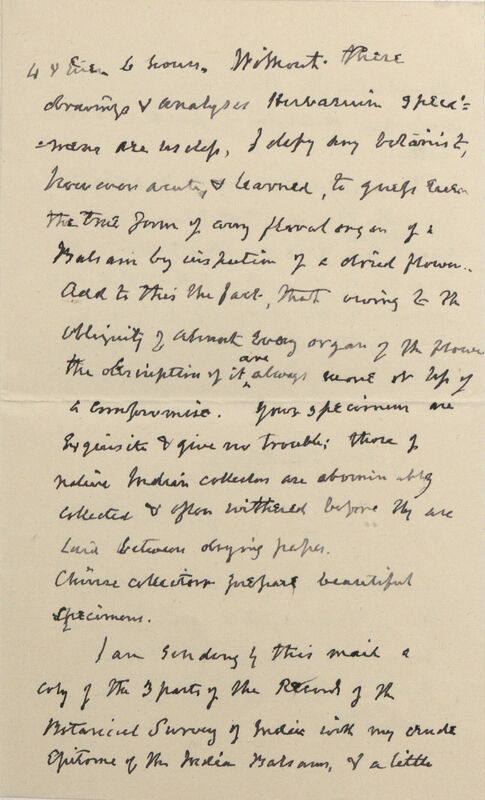 4 & even 6 hours. Without these
drawings & analyses Herbarium speci=
=mens are useless, I defy any botanist,
however acute, & learned, to guess even
the true form of any floral organ of a
Balsam by inspection of a dried flower.
Add to this the fact, that owing to the
obliquity of almost every organ of the flower
the descriptions of it are always more or less of
a compromise. Your specimens are
exquisite & give no trouble; those of
native Indian collectors are abominably
collected & often withered before they are
laid between drying paper.
Chinese collectors prepare beautiful
specimens.
I am sending by this mail a
copy of the 3 parts of the Records of the
Botanical Survey of India with my crude
Epitome of the India Balsams, & a little